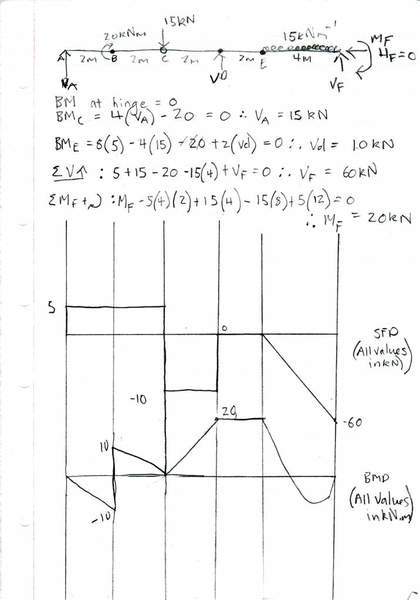 20kNm 15kN 15kNm⁻¹ M_F
A B C D E F H_F=0
2m 2m 2m 2m 4m
V_A V_D V_F
BM at hinge = 0
BM_C = 4(V_A) - 20 = 0 ∴ V_A = 15kN
BM_E = 8(5) - 4(15) - 20 + 2(Vd) = 0 ∴ Vd = 10kN
ΣV↑ : 5 + 15 - 20 - 15(4) + V_F = 0 ∴ V_F = 60kN
ΣM_F + : M_F - 5(4)(2) + 15(4) - 15(8) + 5(12) = 0
∴ M_F = 20kN
5
0
SFD
(All values
in kN)
-10
-60
20
10
BMD
-10
(All values
in kN.m)